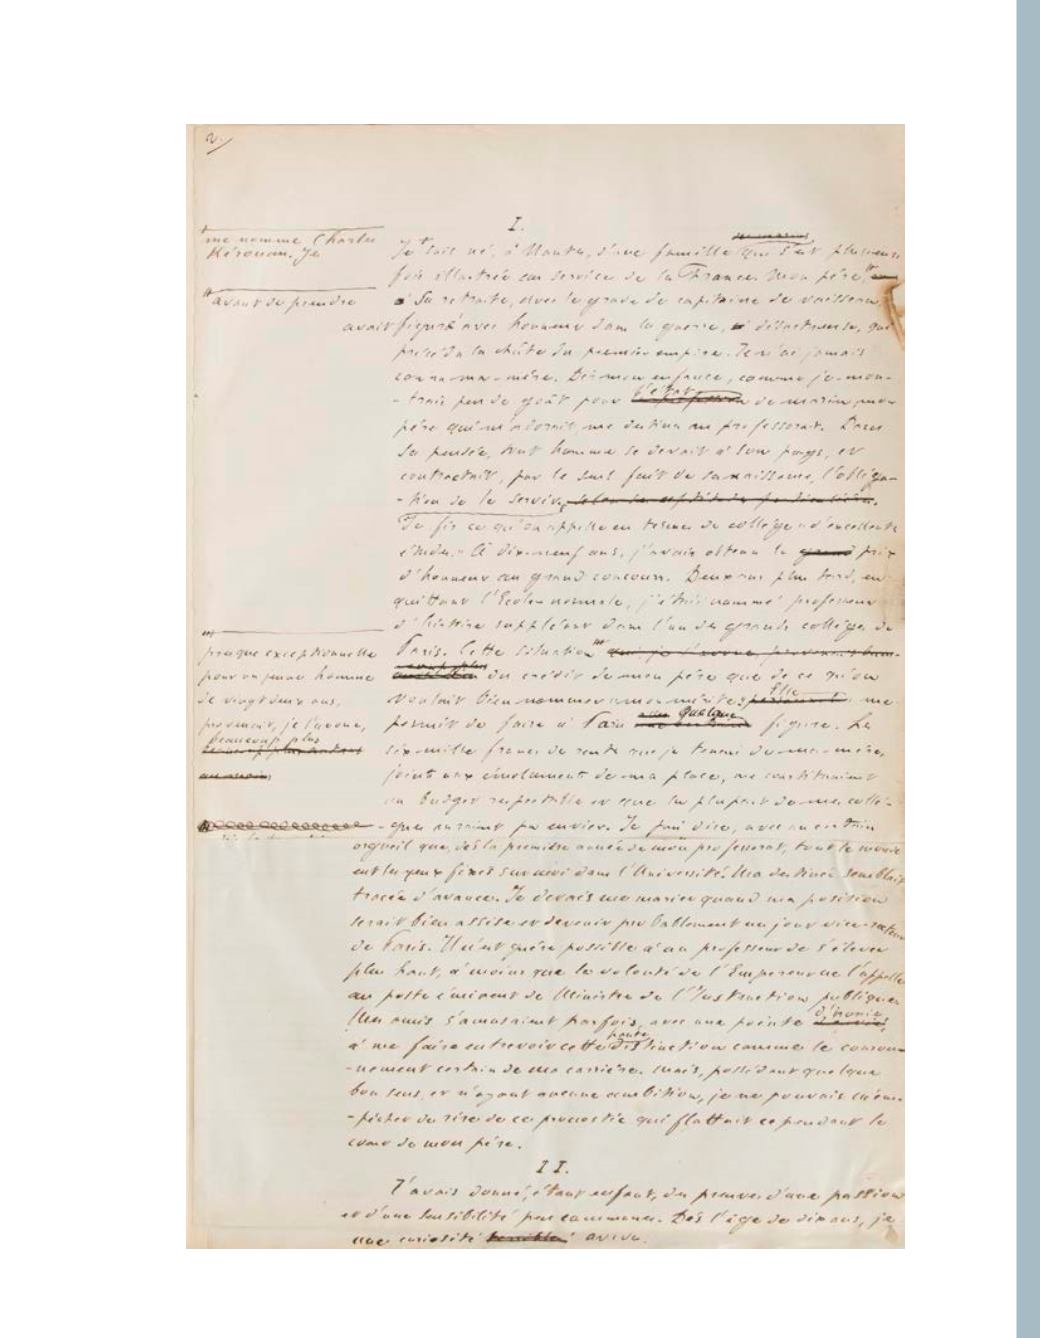 2.
I.
me nomme Charles
Kérouan. Je
avant de prendre
Je suis né, à Nantes, d'une famille qui s'est plusieurs
fois illustrée au service de la France. Mon père,
sa retraite, avec le grade de capitaine de vaisseau,
avait figuré avec honneur dans la guerre, désastreuse, qui
précéda la chûte du premier empire. Je n'ai jamais
connu ma mère. Dès mon enfance, comme je mon-
-trais peu de goût pour l'état de marin, mon
père qui m'adorait, me destina au professorat. Dans
sa pensée, tout homme se devait à son pays, et
contractait, par le seul fait de sa naissance, l'obliga-
-tion de le servir,
Je fis ce qu'on appelle en termes de collège « d'excellentes
études. » A dix-neuf ans, j'avais obtenu le grand prix
d'honneur au grand concours. Deux ans plus tard, en
quittant l'Ecole normale, j'étais nommé professeur
d'histoire suppléant dans l'un des grands collèges de
Paris. Cette situation qui je l'avoue, provenait bien
presque exceptionnelle
pour un jeune homme
de vingt deux ans,
provenait, je l'avoue,
beaucoup plus
du crédit de mon père que de ce qu'on
voulait bien nommer mon mérite; Elle me
permit de faire à Paris quelque figure. Les
six mille francs de rente que je tenais de ma mère,
joints aux émoluments de ma place, me constituaient
un budget respectable et que la plupart de mes collè-
-gues auraient pu envier. Je puis dire, avec un certain
orgueil que, dès la première année de mon professorat, tout le monde
eut les yeux fixés sur moi dans l'Université. Ma destinée semblait
tracée d'avance. Je devais me marier quand ma position
serait bien assise et devenir probablement un jour vice-recteur
de Paris. Il n'est guère possible à un professeur de s'élever
plus haut, à moins que la volonté de l'Empereur ne l'appelle
au poste éminent de Ministre de l'Instruction publique.
Mes amis s'amusaient parfois, avec une pointe d'ironie
à me faire entrevoir cette haute distinction comme le couron-
-nement certain de ma carrière. Mais, possédant quelque
bon sens, et n'ayant aucune ambition, je ne pouvais m'em-
-pêcher de rire de ce pronostic qui flattait cependant le
cœur de mon père.
II.
J'avais donné, étant enfant, des preuves d'une passion
et d'une sensibilité peu communes. Dès l'âge de dix ans, je
une curiosité avive.